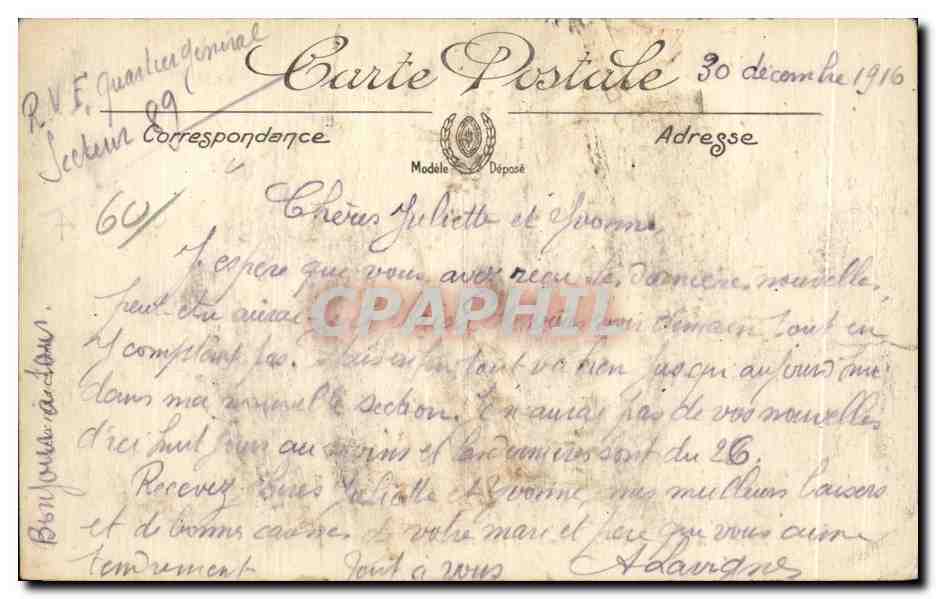 R.V.F. quartier general
Secteur 89
Carte Postale
30 décembre 1916
Correspondance
Adresse
Modèle Déposé
60/
Chères Juliette et Yvonne
J'espère que vous avez reçu dernières nouvelles
peut-etre aurai demain tout en
y comptant pas. Mais enfin tout va bien jusqu'aujourd'hui
dans ma nouvelle section. J'en aurai pas de vos nouvelles
d'ici huit jours au moins et les dernières sont du 26.
Recevez chères Juliette et Yvonne, mes meilleurs baisers
et de bonnes caresses de votre mari et père que vous aime
tendrement Tout a vous ALavigne
Bonjour aux
CPAPHIL